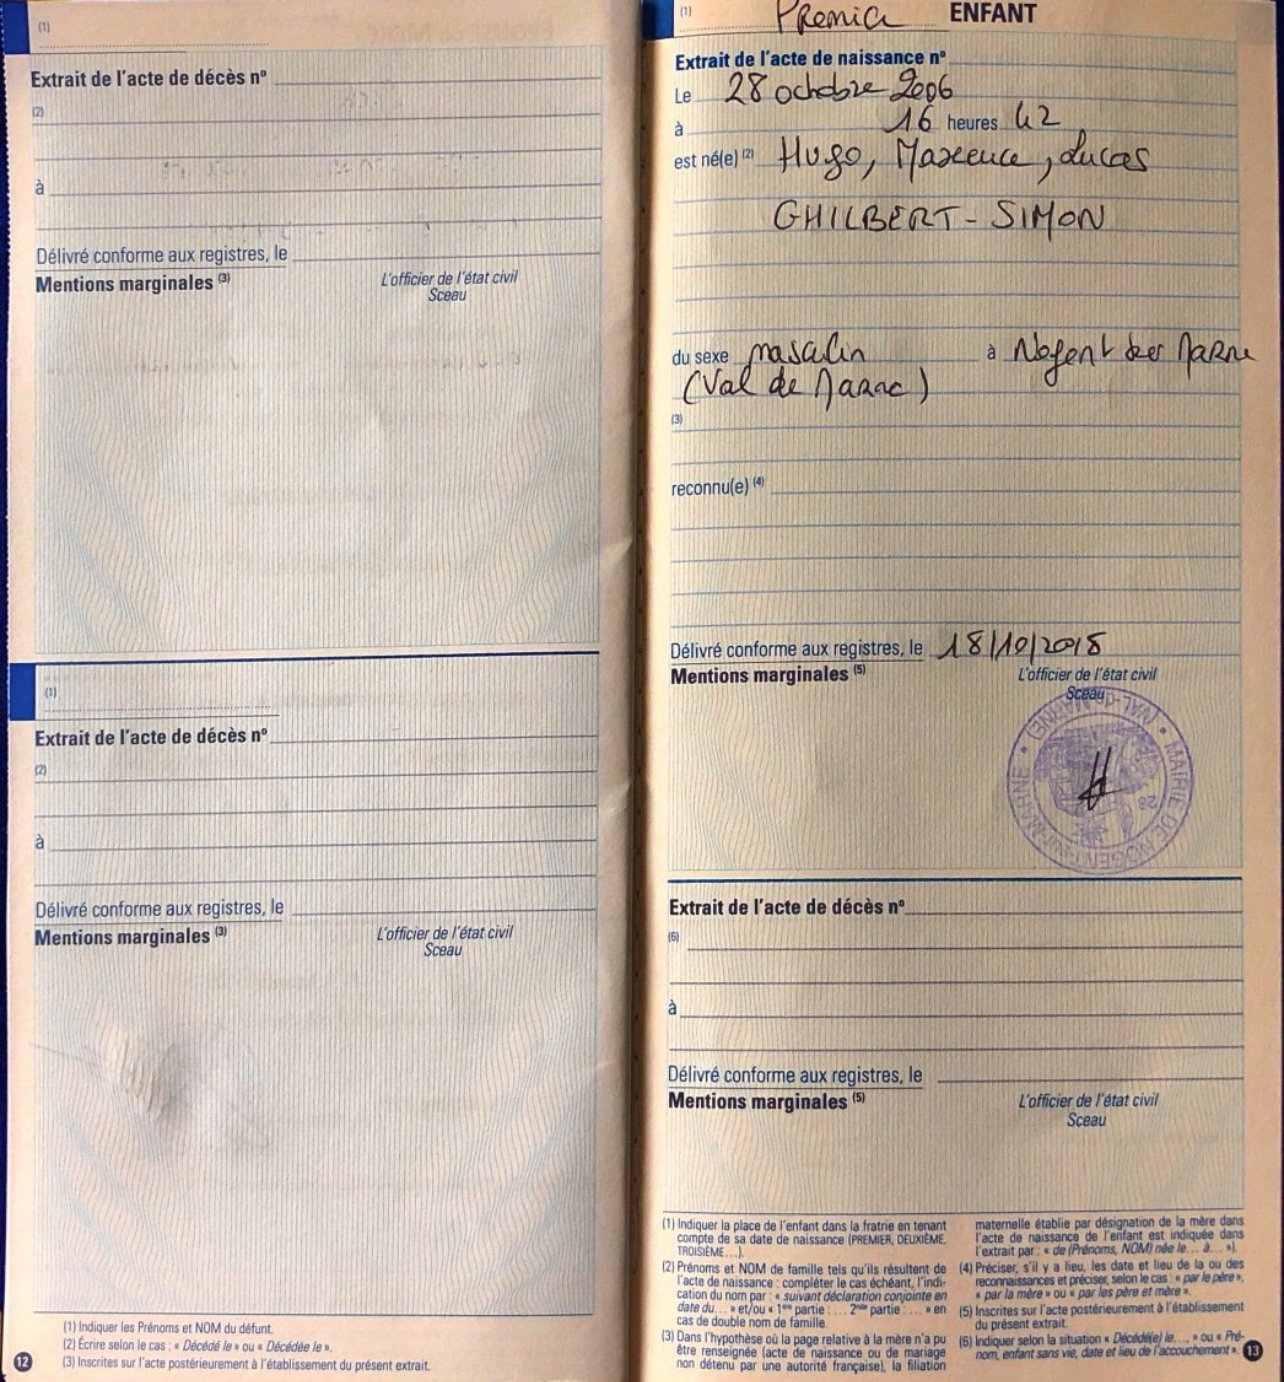 (1)
Extrait de l'acte de décès nº
(2)
à
Délivré conforme aux registres, le
Mentions marginales (3)
L'officier de l'état civil
Sceau
(1)
Extrait de l'acte de décès nº
(2)
à
Délivré conforme aux registres, le
Mentions marginales (3)
L'officier de l'état civil
Sceau
(1) Indiquer les Prénoms et NOM du défunt.
(2) Écrire selon le cas : « Décédé le » ou « Décédée le ».
(3) Inscrites sur l'acte postérieurement à l'établissement du présent extrait.
12
(1) Premier ENFANT
Extrait de l'acte de naissance nº
Le 28 octobre 2006
à 16 heures 42
est né(e) (2) Hugo, Maxence, Lucas
GHILBERT - SIMON
du sexe masculin à Nogent sur Marne
(Val de Marne)
(3)
reconnu(e) (4)
Délivré conforme aux registres, le 18/10/2018
Mentions marginales (5)
L'officier de l'état civil
Sceau
MAIRIE DE NOGENT-sur-MARNE • (VAL-de-MARNE) •
28
Extrait de l'acte de décès nº
(6)
à
Délivré conforme aux registres, le
Mentions marginales (5)
L'officier de l'état civil
Sceau
(1) Indiquer la place de l'enfant dans la fratrie en tenant
compte de sa date de naissance (PREMIER, DEUXIÈME,
TROISIÈME…).
(2) Prénoms et NOM de famille tels qu'ils résultent de
l'acte de naissance : compléter le cas échéant, l'indi-
cation du nom par : « suivant déclaration conjointe en
date du… » et/ou « 1ère partie : … 2nde partie : … » en
cas de double nom de famille.
(3) Dans l'hypothèse où la page relative à la mère n'a pu
être renseignée (acte de naissance ou de mariage
non détenu par une autorité française), la filiation
maternelle établie par désignation de la mère dans
l'acte de naissance de l'enfant est indiquée dans
l'extrait par : « de (Prénoms, NOM) née le… à… »).
(4) Préciser, s'il y a lieu, les date et lieu de la ou des
reconnaissances et préciser, selon le cas : « par le père »,
« par la mère » ou « par les père et mère ».
(5) Inscrites sur l'acte postérieurement à l'établissement
du présent extrait.
(6) Indiquer selon la situation « Décédé(e) le… » ou « Pré-
nom, enfant sans vie, date et lieu de l'accouchement ».
13